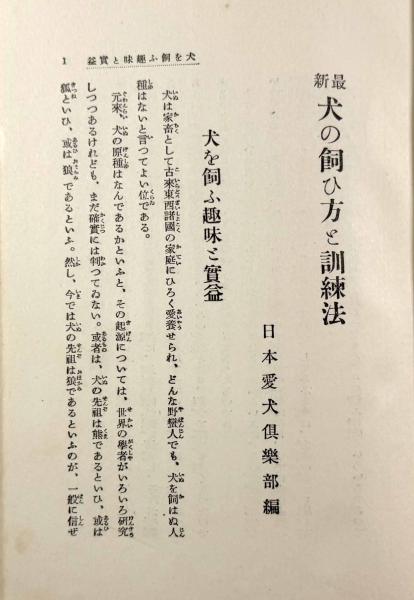 最新 犬の飼ひ方と訓練法
日本愛犬倶樂部編
犬を飼ふ趣味と實益
犬は家畜として古來東西諸國の家庭にひろく愛養せられ、どんな野蠻人でも、犬を飼はぬ人
種はないと言つてよい位である。
元來、犬の原種はなんであるかといふと、その起源については、世界の學者がいろいろ研究
しつつあるけれども、まだ確實には判つてゐない。或者は、犬の先祖は熊であるといひ、或は
狐といひ、或は狼であるといふ。然し、今では犬の先祖は狼であるといふのが、一般に信ぜ
犬を飼ふ趣味と實益
1